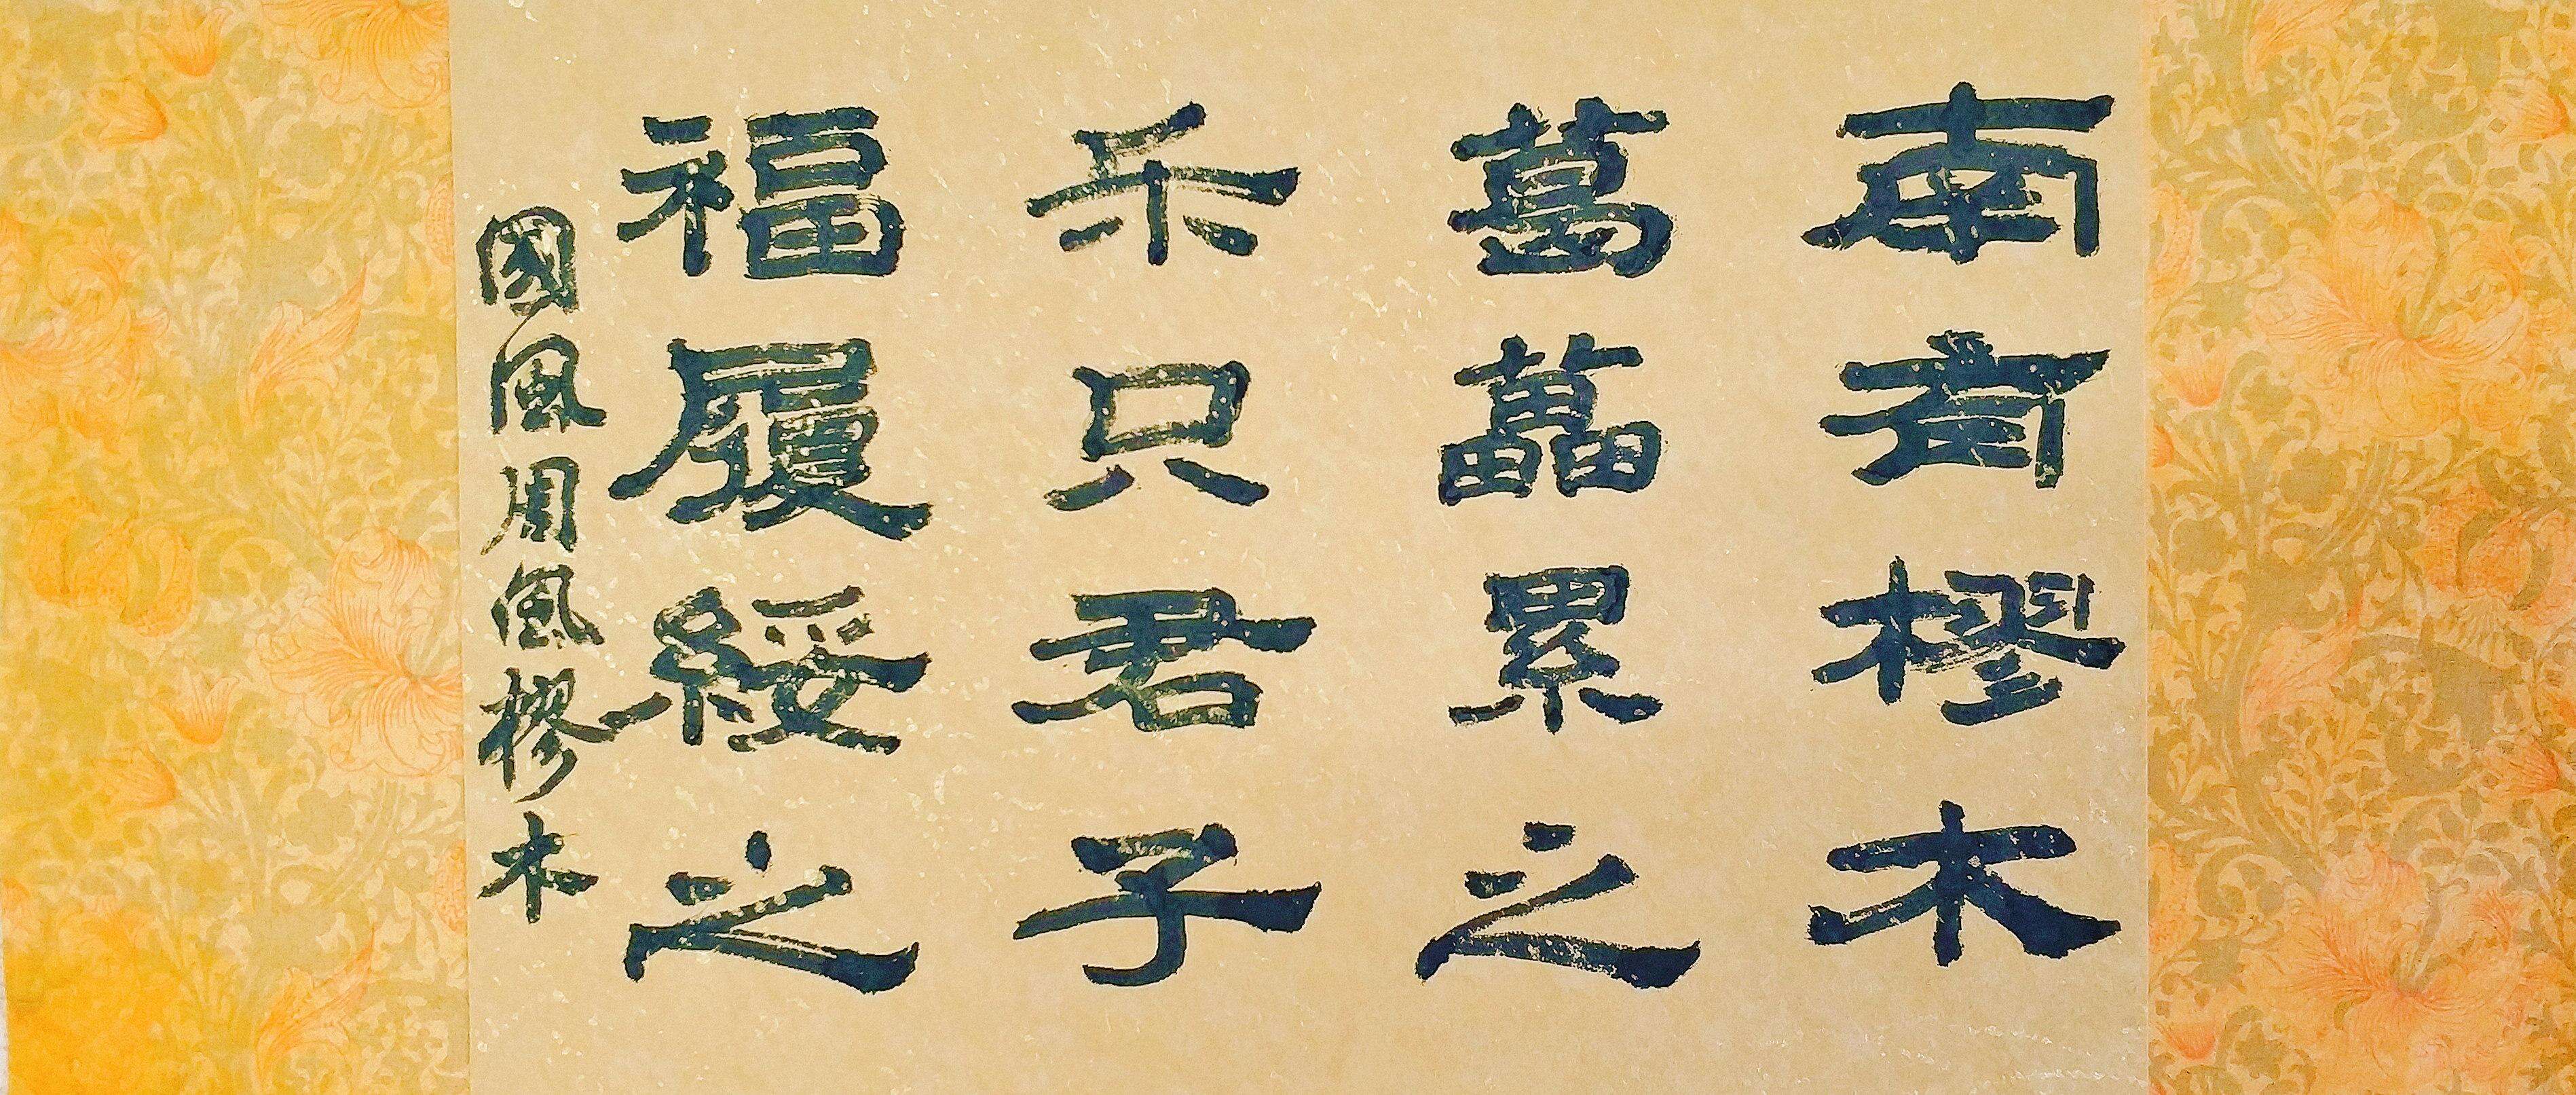 南有樛木
葛藟累之
乐只君子
福履綏之
國風周風樛木